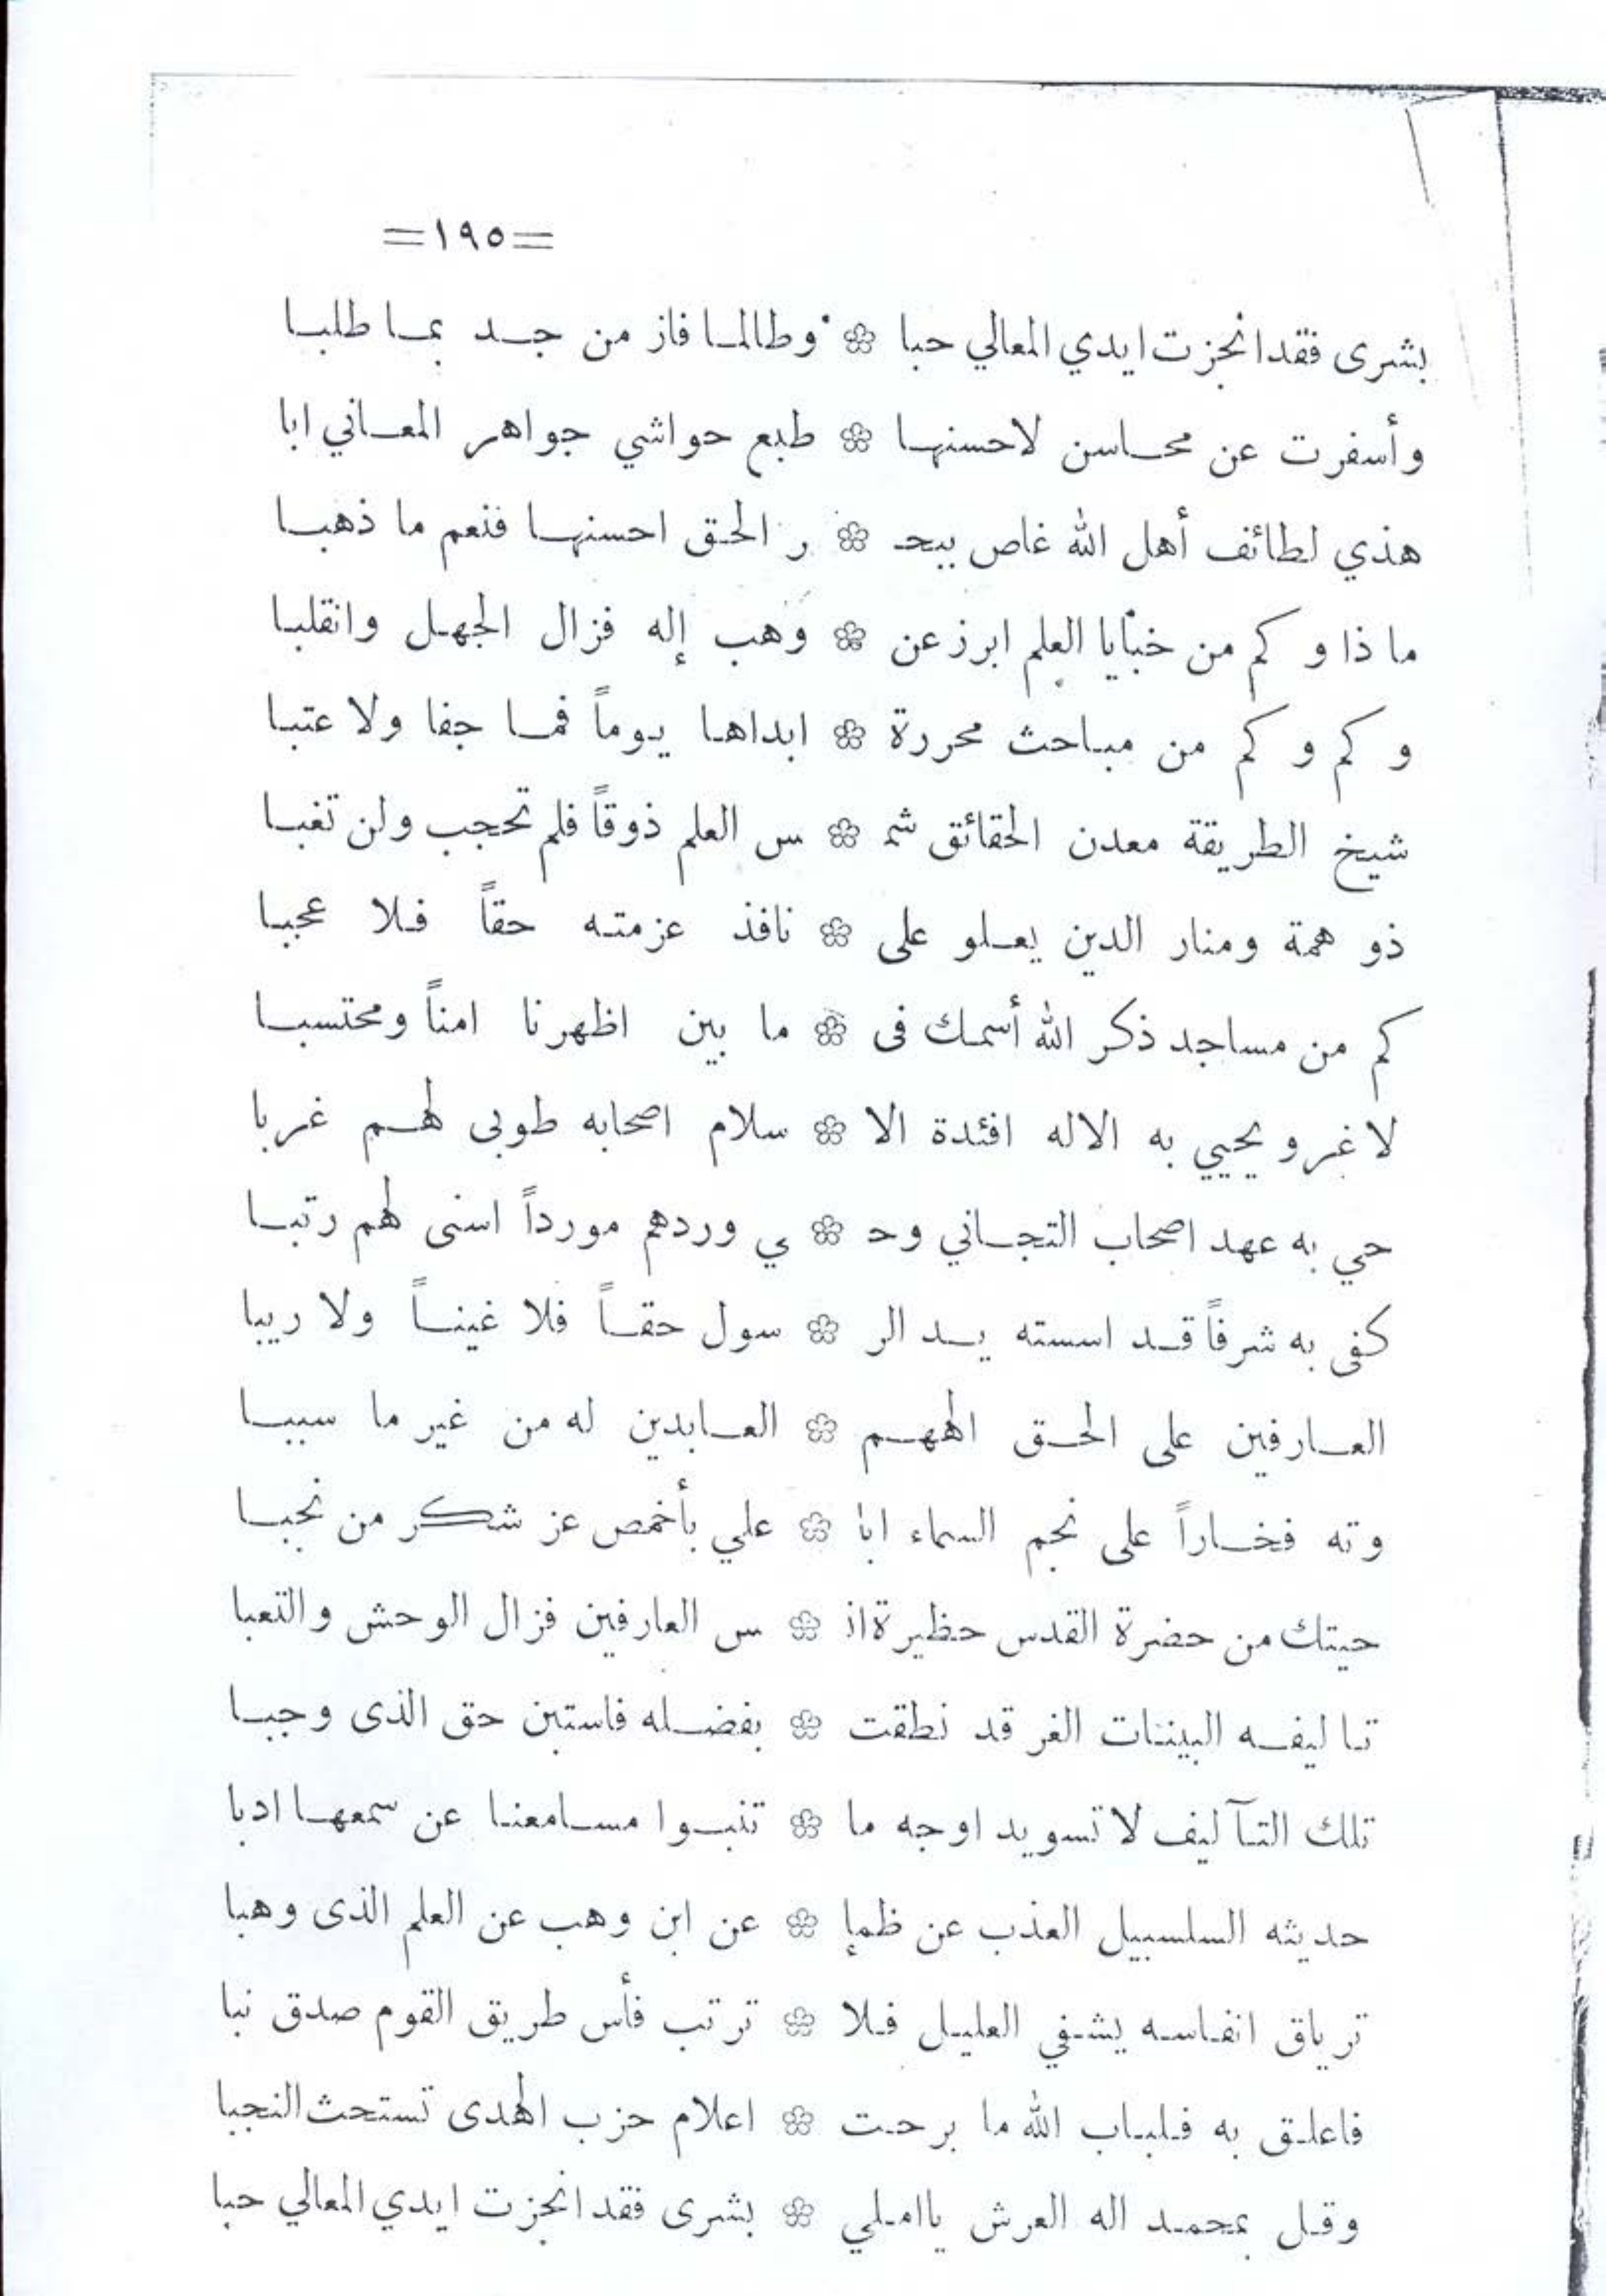 =١٩٥=
بشرى فقد انجزت ايدي المعالي حبا ❀ وطالما فاز من جد بما طلبا
وأسفرت عن محاسن لاحسنها ❀ طبع حواشي جواهر المعاني ابا
هذي لطائف أهل الله غاص ببحـ ❀ ر الحق احسنها فنعم ما ذهبا
ما ذا وكم من خبايا العلم ابرز عن ❀ وهب إله فزال الجهل وانقلبا
وكم وكم من مباحث محررة ❀ ابداها يوماً فما جفا ولا عتبا
شيخ الطريقة معدن الحقائق شمـ ❀ س العلم ذوقاً فلم تحجب ولن تغبا
ذو همة ومنار الدين يعلو على ❀ نافذ عزمته حقاً فلا عجبا
كم من مساجد ذكر الله أسمك فى ❀ ما بين اظهرنا امناً ومحتسبا
لا غرو يحيي به الاله افئدة الا ❀ سلام اصحابه طوبى لهم غربا
حي به عهد اصحاب التجاني وحـ ❀ ي وردهم مورداً اسنى لهم رتبا
كفى به شرفاً قد اسسته يد الر ❀ سول حقاً فلا غيناً ولا ريبا
العارفين على الحق الههم ❀ العابدين له من غير ما سببا
وته فخاراً على نجم السماء ابا ❀ علي بأخمص عز شكر من نجبا
حيتك من حضرة القدس حظيرة انـ ❀ س العارفين فزال الوحش والتعبا
تاليفه البينات الغر قد نطقت ❀ بفضله فاستبن حق الذى وجبا
تلك التآليف لا تسويد اوجه ما ❀ تنبوا مسامعنا عن سمعها ادبا
حديثه السلسبيل العذب عن ظمإ ❀ عن ابن وهب عن العلم الذى وهبا
ترياق انفاسه يشفي العليل فلا ❀ ترتب فأس طريق القوم صدق نبا
فاعلق به فلباب الله ما برحت ❀ اعلام حزب الهدى تستحث النجبا
وقل بمحمد اله العرش ياامـلي ❀ بشرى فقد انجزت ايدي المعالي حبا